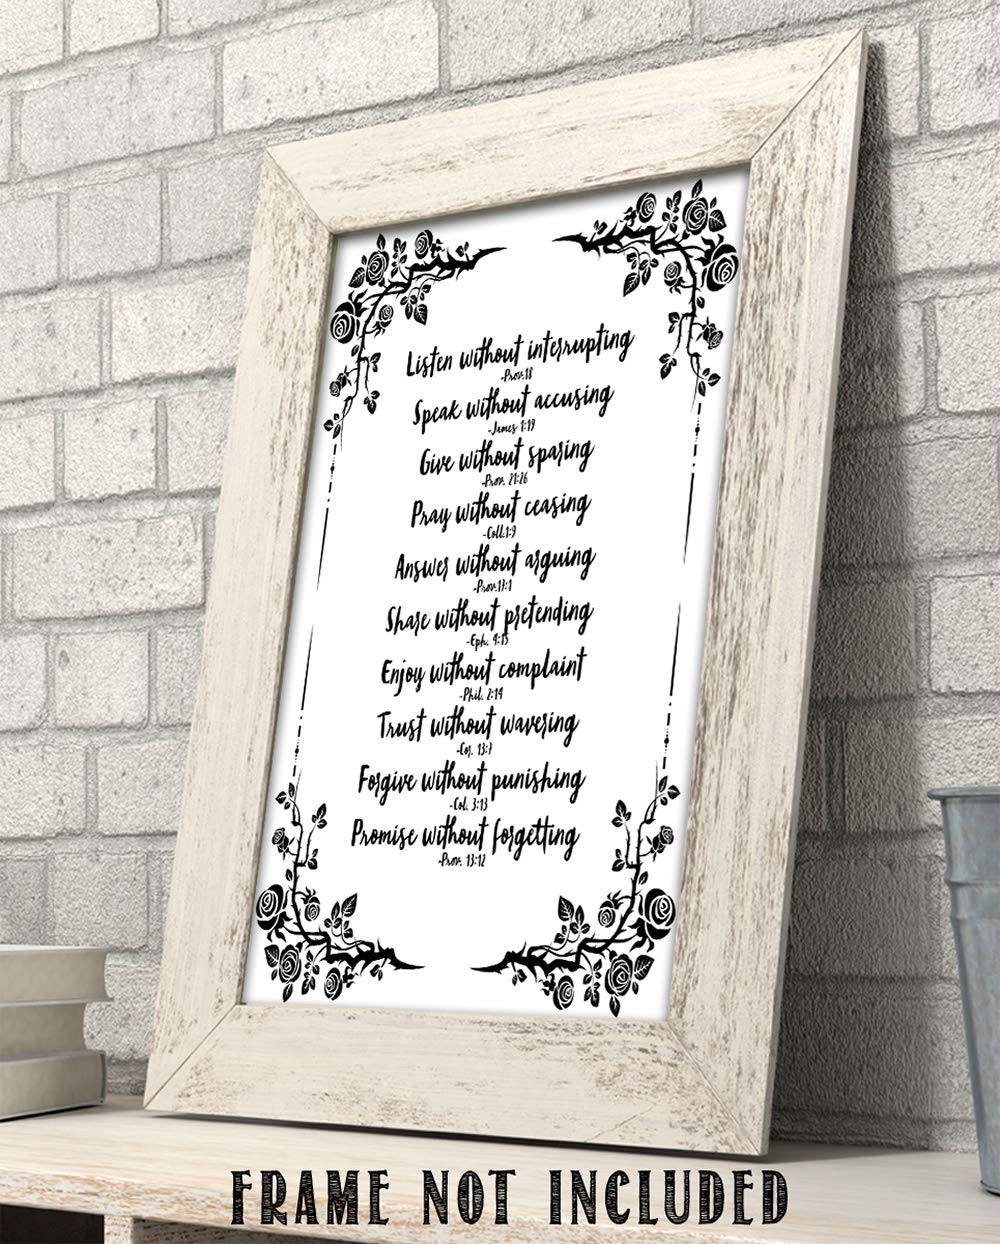 Listen without interrupting
-Prov.18
Speak without accusing
-James 1:19
Give without sparing
-Prov. 21:26
Pray without ceasing
-Coll.1:9
Answer without arguing
-Prov.17:1
Share without pretending
-Eph. 4:15
Enjoy without complaint
-Phil. 2:14
Trust without wavering
-Cor. 13:7
Forgive without punishing
-Col. 3:13
Promise without forgetting
-Prov. 13:12
FRAME NOT INCLUDED